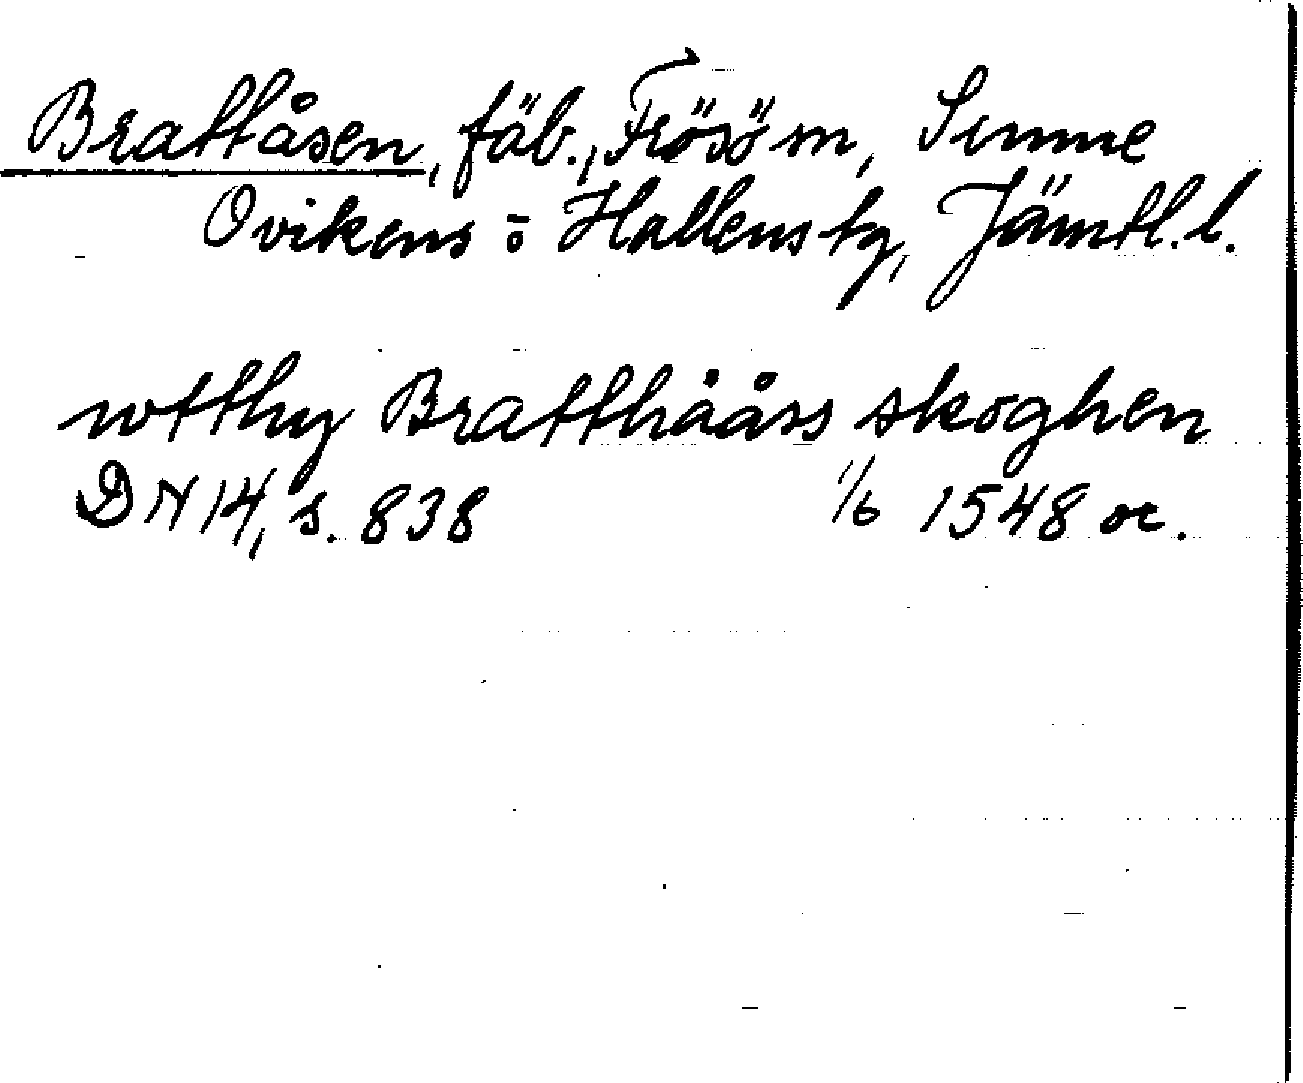 Brattåsen, fäb., Frösö sn, Sunne
Ovikens o Hallens tg, Jämtl. l.
wtthy Bratthååss skoghen
DN 14, s. 838 1/6 1548 or.